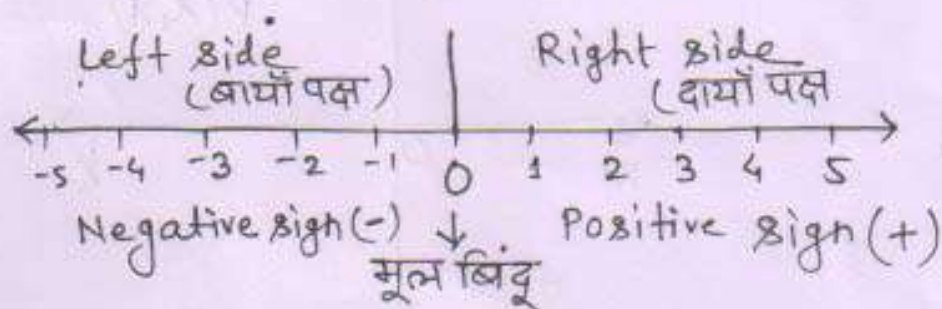 Left side Right side
(बायाँ पक्ष) (दायाँ पक्ष
-5 -4 -3 -2 -1 0 1 2 3 4 5
Negative sign(-) Positive sign(+)
मूल बिंदू